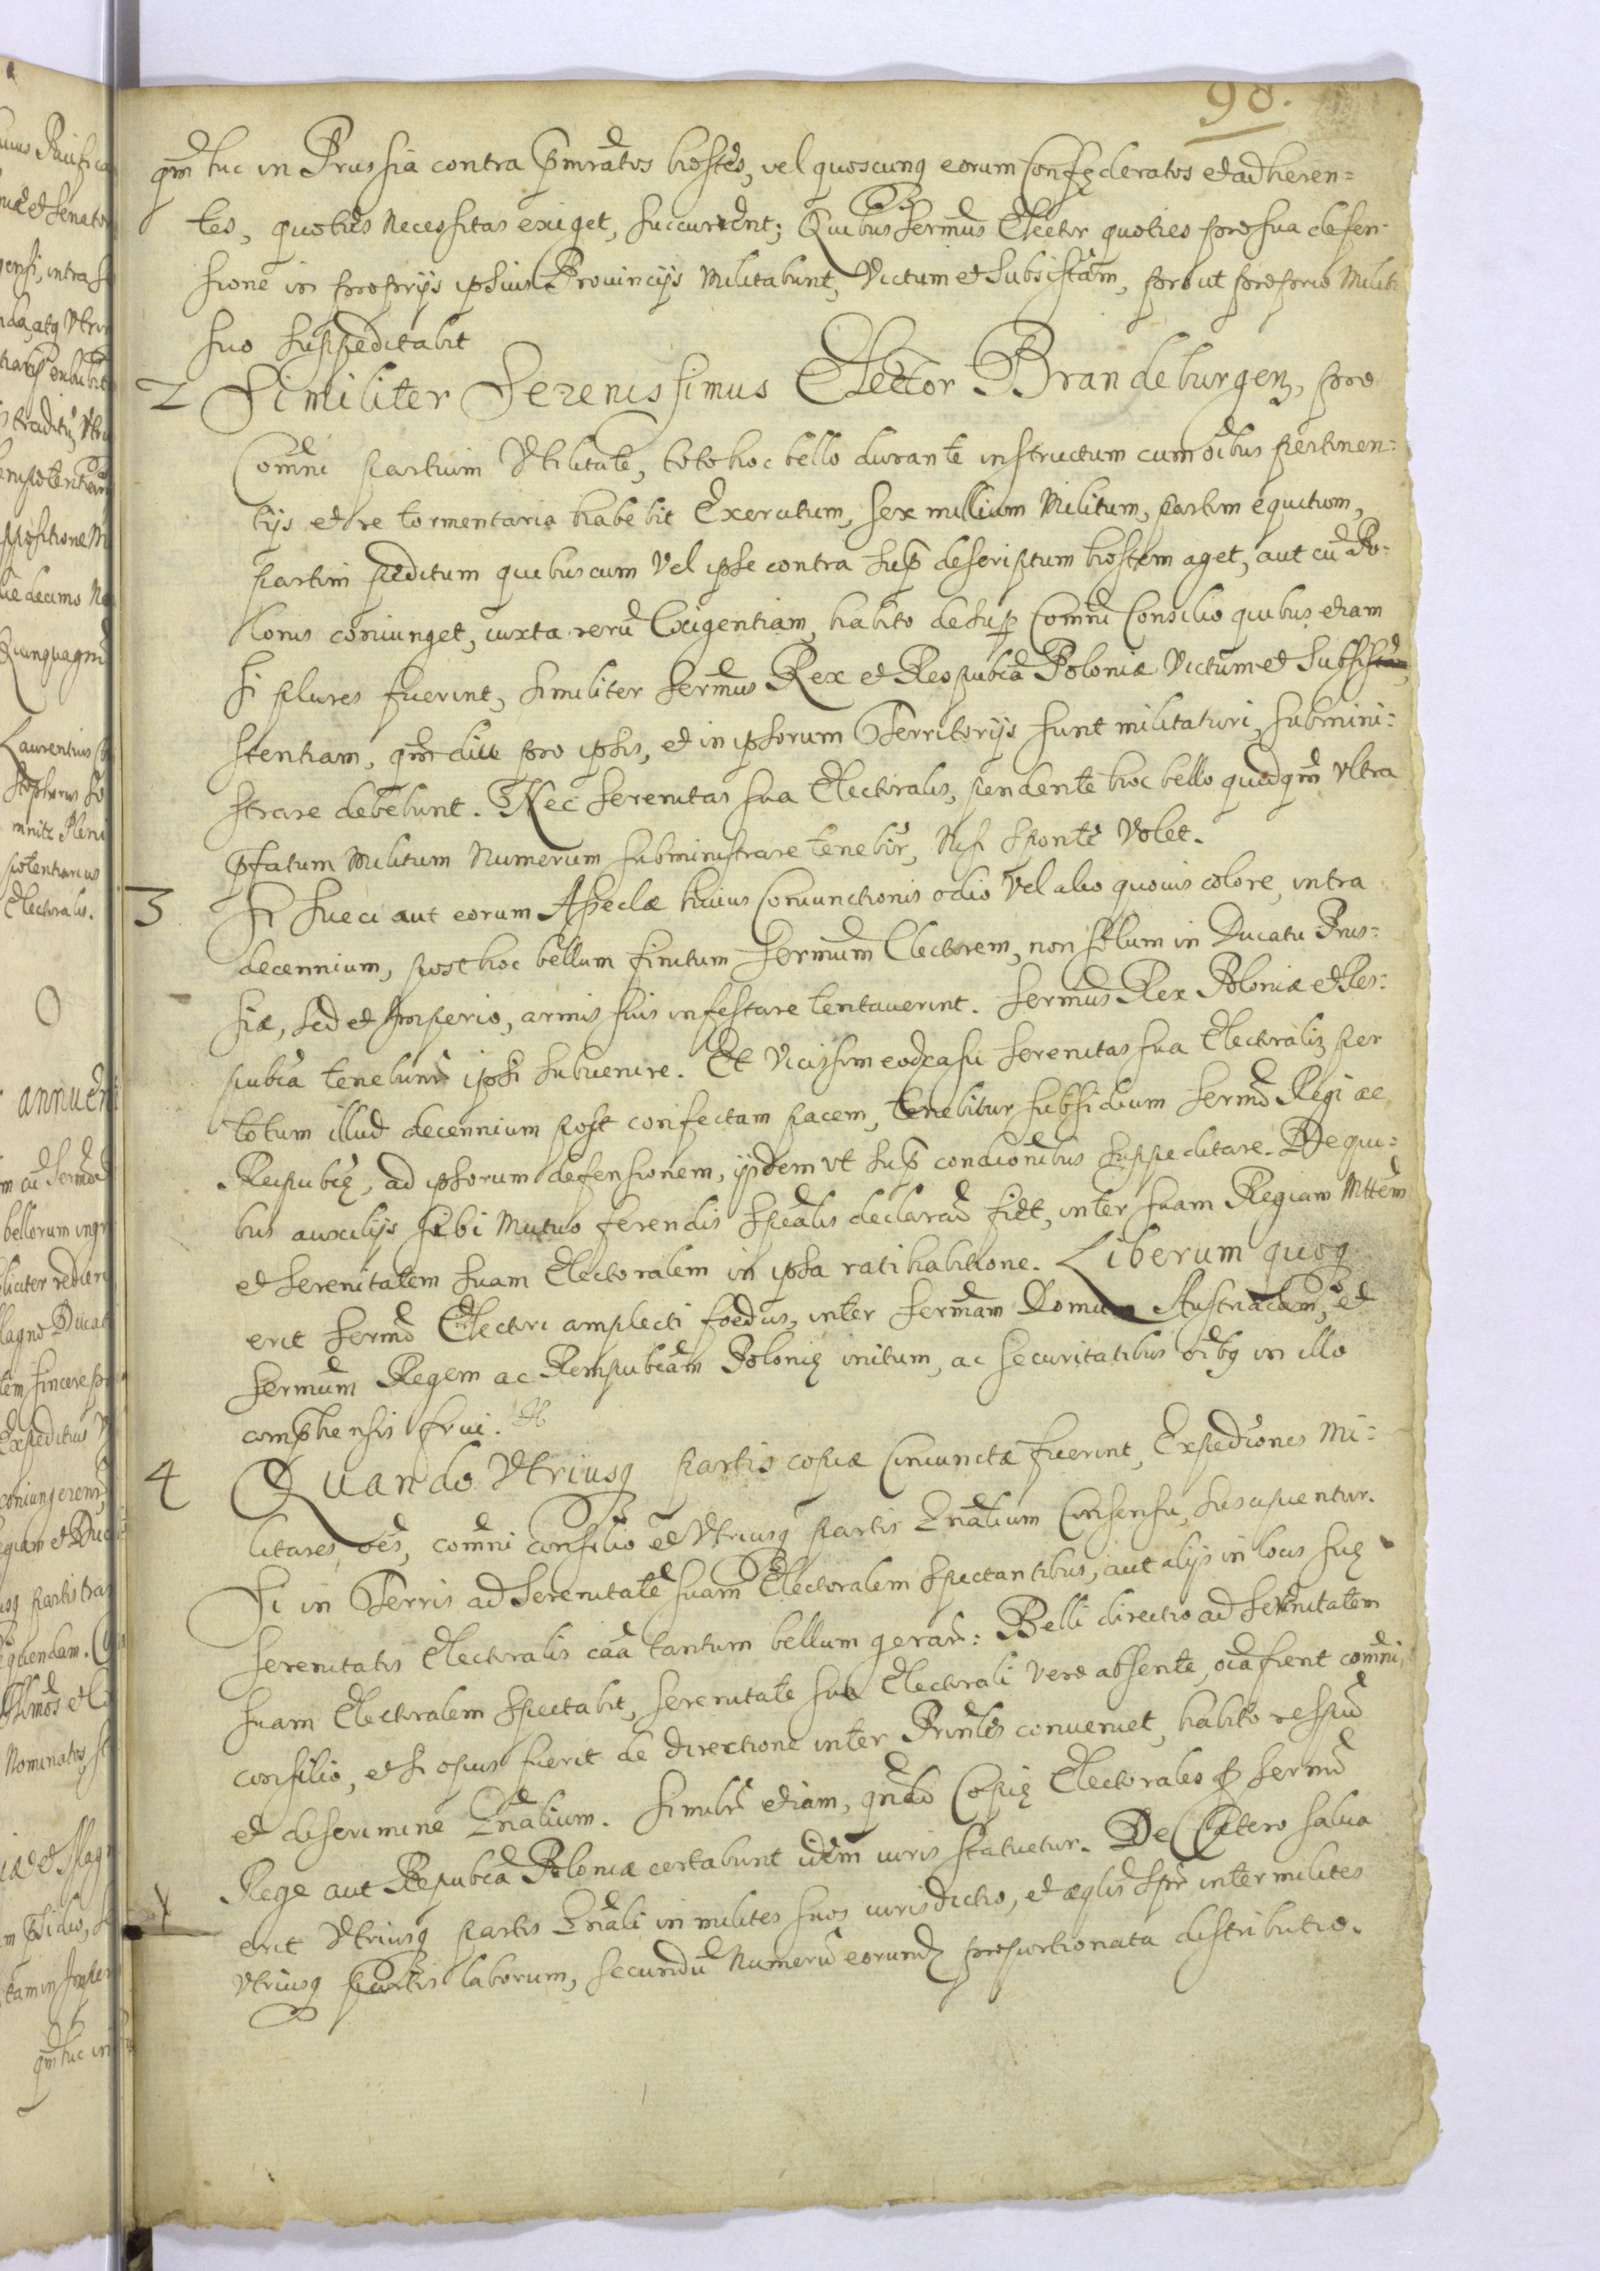 98.
qm̃ huc in Prussia contra p̃mratos hostes, vel quoscunq eorum Confęderatos et adheren=
tes, quoties Necessitas exiget, succurrent; Quibus Sermus Elector quoties pro sua defen=
sione in proprijs ipsius Provincijs Militabunt, Victum et Subsistam, prout proprio Militi
suo suppeditabit
2 Similiter Serenissimus Elector Brandeburgen, pro
Comni partium Vtilitate, toto hoc bello durante instructum cum oibus pertinen=
tijs et re tormentaria habebit Exercitum, sex millium Militum, partim equitum,
partim peditum quibuscum vel ipse contra sup descriptum hostem aget, aut cu Po=
lonis coniunget, iuxta reru Exigentiam, habito desup Comni Consilio quibus etiam
si plures fuerint, similiter Sermus Rex et Respubca Poloniæ Victum et Subsi
stentiam, qmdiu pro ipsis, et in ipsorum Territorijs sunt militaturi, submini=
strare debebunt. Nec Serenitas sua Electoralis, pendente hoc bello quidqm vltra
pfatum Militum Numerum subministrare tenebir, Nisi sponte Volet.
3 Si Sueci aut eorum Aseclæ huius Coniunctionis odio Vel alio quovis colore, intra
decennium, post hoc bellum finitum Sermum Electorem, non solum in Ducatu Prus=
siæ, sed et Imperio, armis suis infestare tentaverint. Sermus Rex Poloniæ et Res=
pubca tenebunr ipsi subvenire. Et Vicissim eodcasu Serenitas sua Electoralis per
totum illud decennium post confectam pacem, tenebitur subsidium Sermo Regi ac
Reipubcę, ad ipsorum defensionem, ijsdem vt sup condicionibus suppeditare. De qui=
bus auxilijs sibi Mutuo ferendis spealis declarao fiet, inter suam Regiam Mttem
et Serenitatem suam Electoralem in ipsa ratihabitione. Liberum quoq
erit Sermo Electori amplecti foedus, inter Sermam Domum Austriacam, et
Sermum Regem ac Rempubcam Polonię initum, ac securitatibus oibq in illo
comphensis frui.
4 Quando Vtriusq partis copiæ Coniunctæ fuerint, Expediones Mi=
litares oes, comni consilio et Vtriusq partis Gnalium Consensu, suscipientur.
Si in Terris ad Serenitate suam Electoralem spectantibus, aut alijs in locis suę
Serenitatis Electoralis caa tantum bellum gerar: Belli directio ad Serenitatem
suam Electoralem spectabit, Serenitate sua Electorali vero absente, oia fient comni,
consilio, et si opus fuerit de directione inter Prinles conveniet, habito respu
et discrimine Gnalium. Similir etiam, qndo Copię Electorales p Sermo
Rege aut Repubca Poloniæ certabunt idem iuris statuetur. De Cætero salva
erit Vtriusq partis Gnali in milites suos iurisdictio, et æqlis spr inter milites
Vtriusq partis laborum, secundu Numeru eorund proportionata distributio.